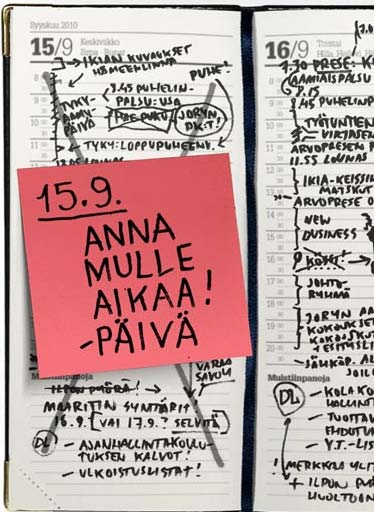 Syyskuu 2010
15/9 Keskiviikko
Sirpa
→ IKIAN KUVAUKSET
HÄMEENLINNA
PUHE!
8.45 PUHELIN-
PALSU-USA
TYKY-
AAMU-
PÄIVÄ
JORYN
DK:T!
TYKY: LOPPUPUHEENV.
15.9.
ANNA
MULLE
AIKAA!
-PÄIVÄ
VARAA
SAVOY
Muistiinpanoja
ILPON PYÖRÄ!
MAARITIN SYNTTÄRIT
16.9. (VAI 17.9.? SELVITÄ)
DL - AJANHALLINTAKOULU-
TUKSEN KALVOT!
- ULKOISTUSLISTAT!
16/9 Torstai
7.30 PRESE: K
AAMIAISPALSU
8.15
9.45 PUHELINP
TYÖTUNTIEN
VIRTASEN
ARVOPRESEN P
11.55 LOUNAS
IKIA-KEISSIN
MATSKUT
ARVOPRESE O
NEW
BUSINESS
KÖSSI!
JOHTO-
RYHMÄ
JORYN AA
KOKOUKSET
KOKOUSKUT
+ ESITYSLI
Muistiinpanoja
DL - KOLAKO
HALLINT
- TUOTTAV
EHDOTU
- Y.T.-LIS
! MERKKAA YLIT
+ ILPON PY
HUOLTOON